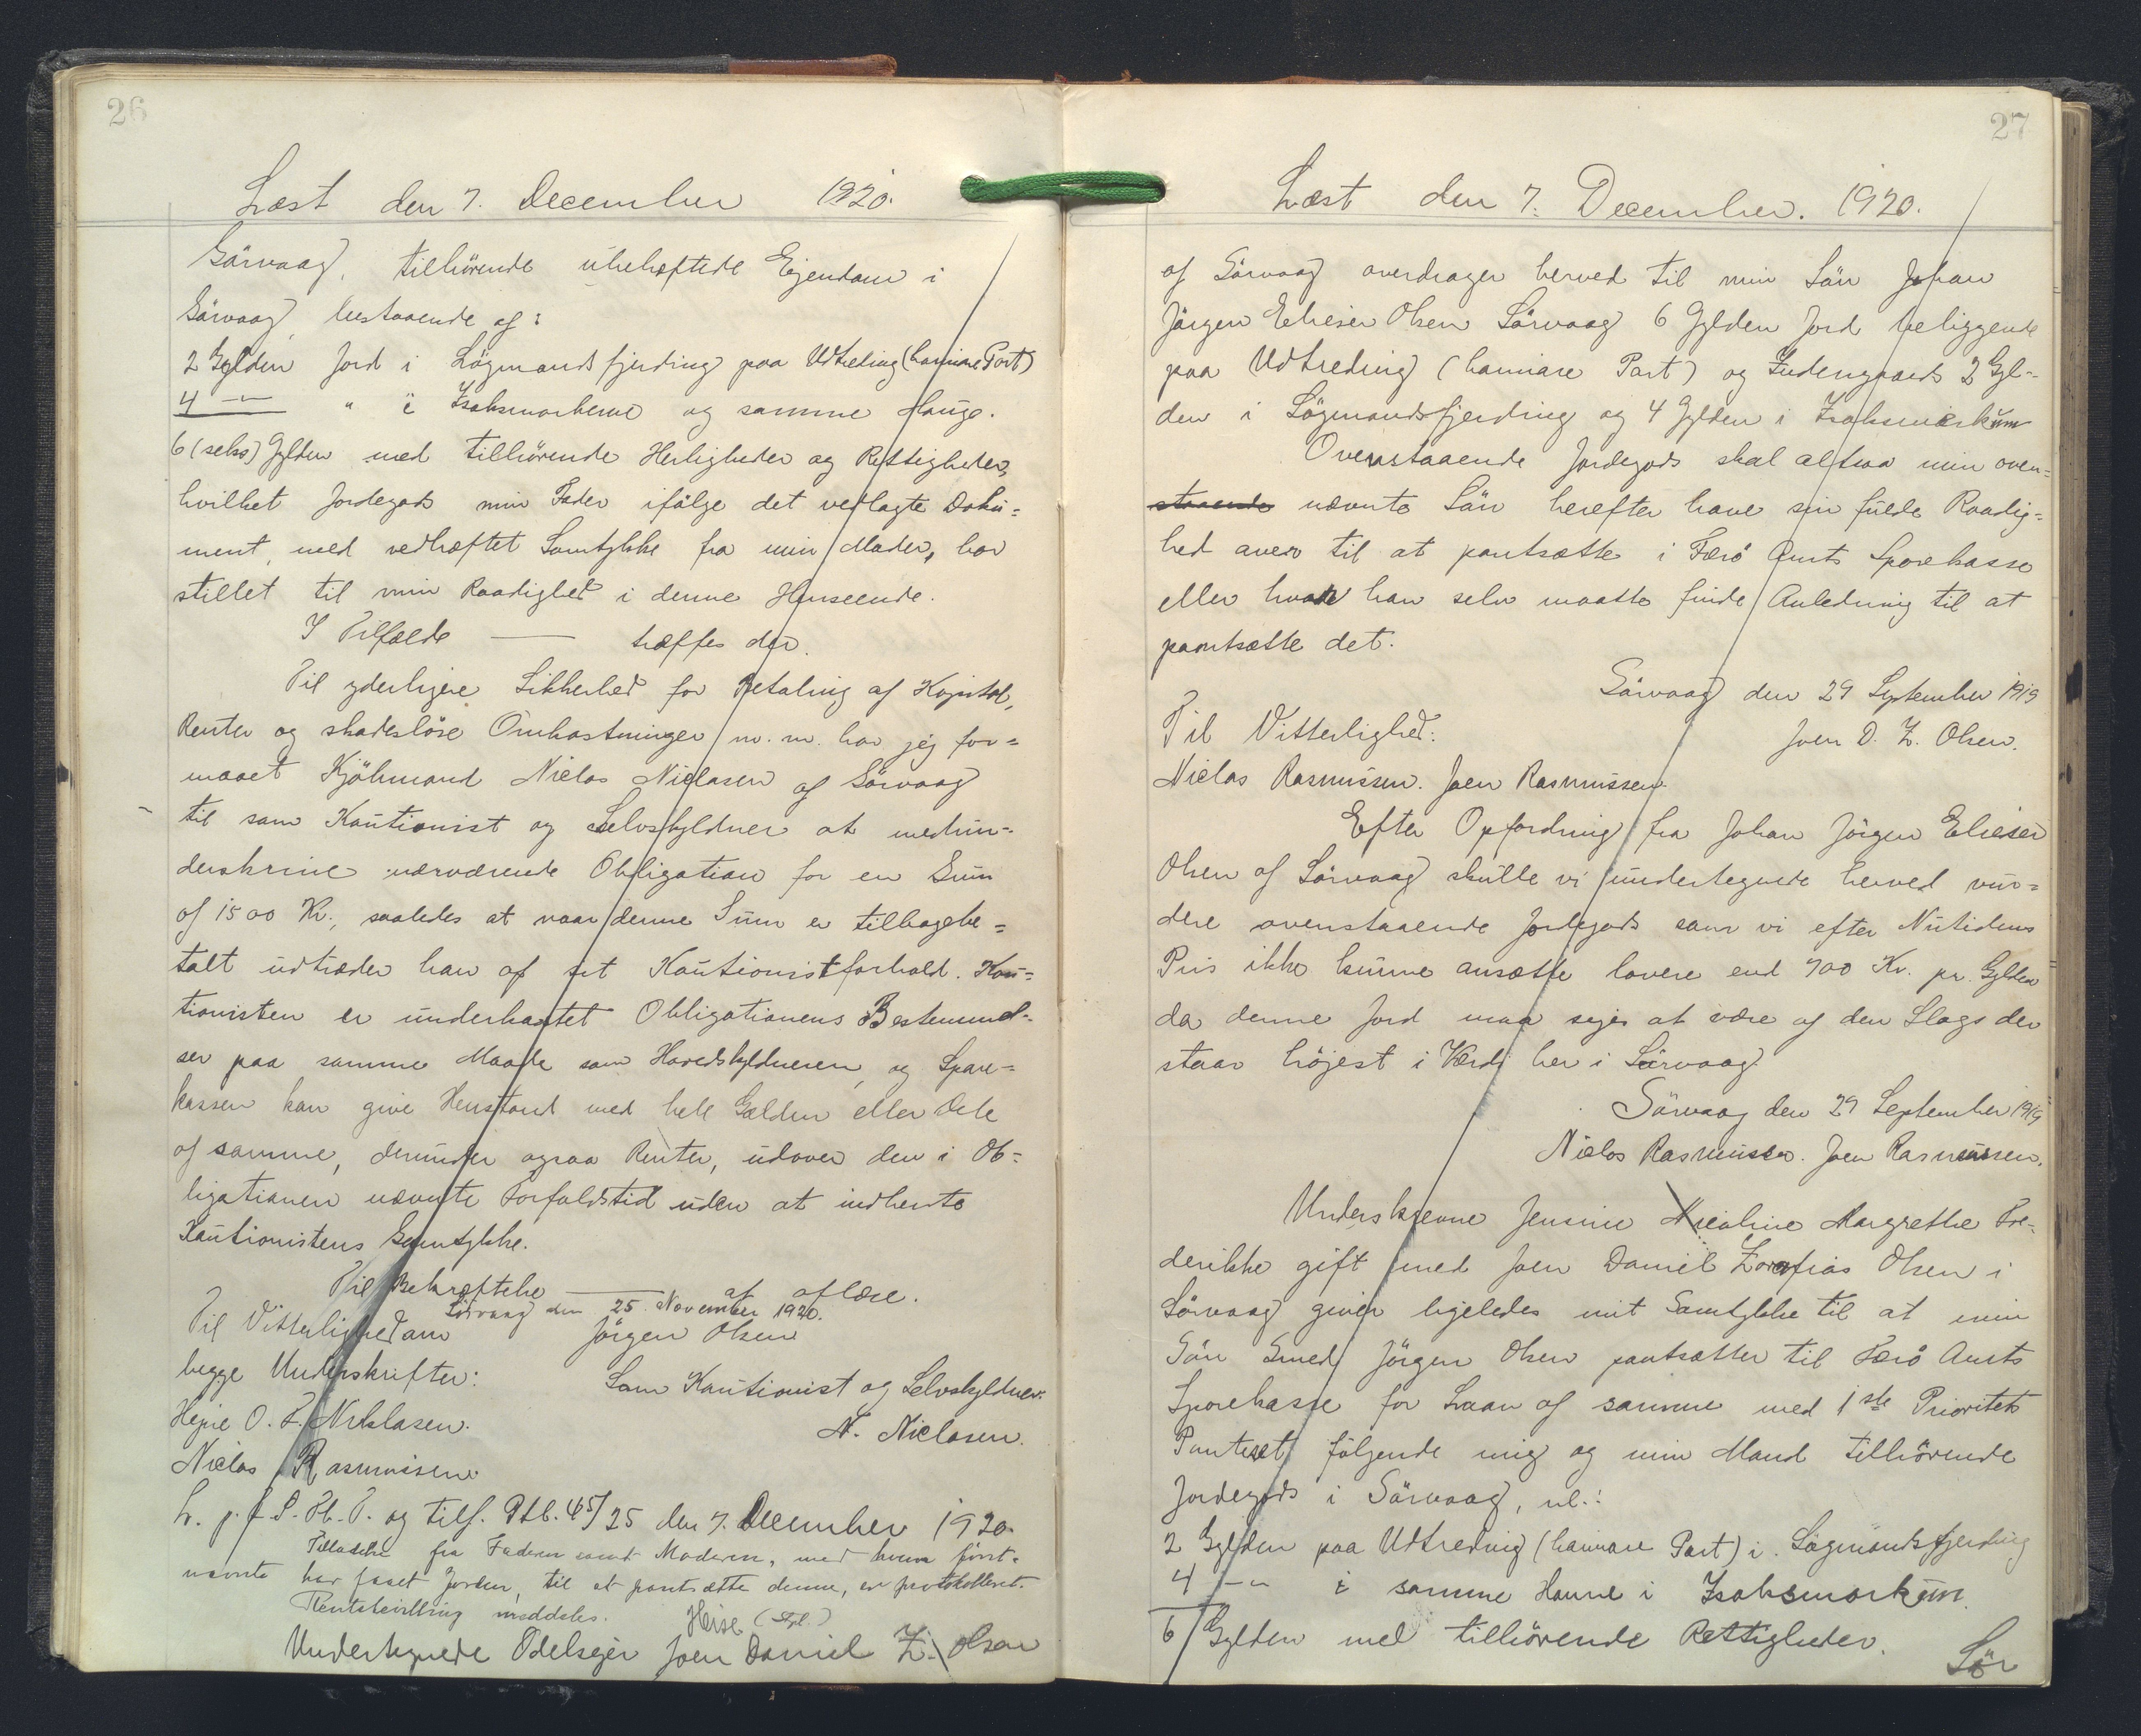 26
Læst den 7. December 1920.
Sörvaag, tilhörende ubehæftede Ejendom i
Sörvaag, bestaaende af:
2 Gylden Jord i Lögmandsfjerding paa Udtreding (hannare Part)
4 -"- " i Isaksmorkerne og samme Hauge.
6 (seks) Gylden med tilhörende Herligheder og Rettigheder,
hvilket Jordegods min Fader ifölge det vedlagte Doku=
ment, med vedhæftet Samtykke fra min Moder, har
stillet til min Raadighed i denne Henseende.
I Tilfælde —— træffes der.
Til yderligere Sikkerhed for Betaling af Kapital,
Renter og skadeslöse Omkostninger m. m. har jeg for=
maaet Kjöbmand Niclas Niclasen af Sörvaag
til som Kautionist og Selvskyldner at medun=
derskrive nærværende Obligation for en Sum
af 1500 Kr., saaledes at naar denne Sum er tilbagebe=
talt udtræder han af sit Kautionistforhold. Kau=
tionisten er underkastet Obligationens Bestemmel=
ser paa samme Maade som Hovedskyldneren, og Spare=
kassen kan give Henstand med hele Gælden eller Dele
af samme, derunder ogsaa Renter, udover den i Ob=
ligationen nævnte Forfaldstid uden at indhente
Kautionistens Samtykke.
Til Bekræftelse —— at aflæse.
Sörvaag den 25. November 1920.
Til Vitterlighed om Jörgen Olsen
begge Underskrifter: Som Kautionist og Selvskyldner:
Hejne O. P. Niklasen. N. Niclasen.
Niclas Rasmussen.
L. p. f. S. Pb. P. og tilf. Ptb. 45/25 den 7. December 1920.
Tilladelse fra Faderen samt Moderen, med hvem först=
nævnte har faaet Jorden, til at pantsætte denne, er protokolleret.
Rentebevilling meddeles. Heise (Spl.)
Undertegnede Odelsejer Joen Daniel Z. Olsen
27
Læst den 7. December. 1920.
af Sörvaag overdrager herved til min Sön Johan
Jörgen Elieser Olsen Sörvaag 6 Gylden Jord beliggende
paa Udtreding (hannare Part) og Indengaards 2 Gyl=
den i Lögmandsfjerding og 4 Gylden i Isaksmørkum
Ovenstaaende Jordegods skal altsaa min oven=
staaende nævnte Sön herefter have sin fulde Raadig=
hed over til at pantsætte i Færö Amts Sparekasse
eller hvor han selv maatte finde Anledning til at
pantsætte det.
Sörvaag den 29 September 1919
Til Vitterlighed: Joen D. Z. Olsen.
Niclas Rasmussen. Joen Rasmussen.
Efter Opfordring fra Johan Jörgen Elieser
Olsen af Sörvaag skulle vi undertegnede herved vur=
dere ovenstaaende Jordegods som vi efter Nutidens
Pris ikke kunne ansætte lavere end 700 Kr. pr. Gylden
da denne Jord maa siges at være af den Slags der
staar höjest i Værdi her i Sörvaag.
Sörvaag den 29 September 1919
Niclas Rasmussen. Joen Rasmussen.
Underskrevne Jensine Nicoline Margrethe Fre=
derikke gift med Joen Daniel Zorofias Olsen i
Sörvaag giver ligeledes mit Samtykke til at min
Sön Smed Jörgen Olsen pantsætter til Færö Amts
Sparekasse for Laan af samme med 1ste Prioritets
Panteret fölgende mig og min Mand tilhörende
Jordegods i Sörvaag, nl.:
2 Gylden paa Udtreding (hannare Part) i Lögmandsfjerding
4 -"- i samme Havne i Isaksmorkum.
6 Gylden med tilhörende Rettigheder.
Sör